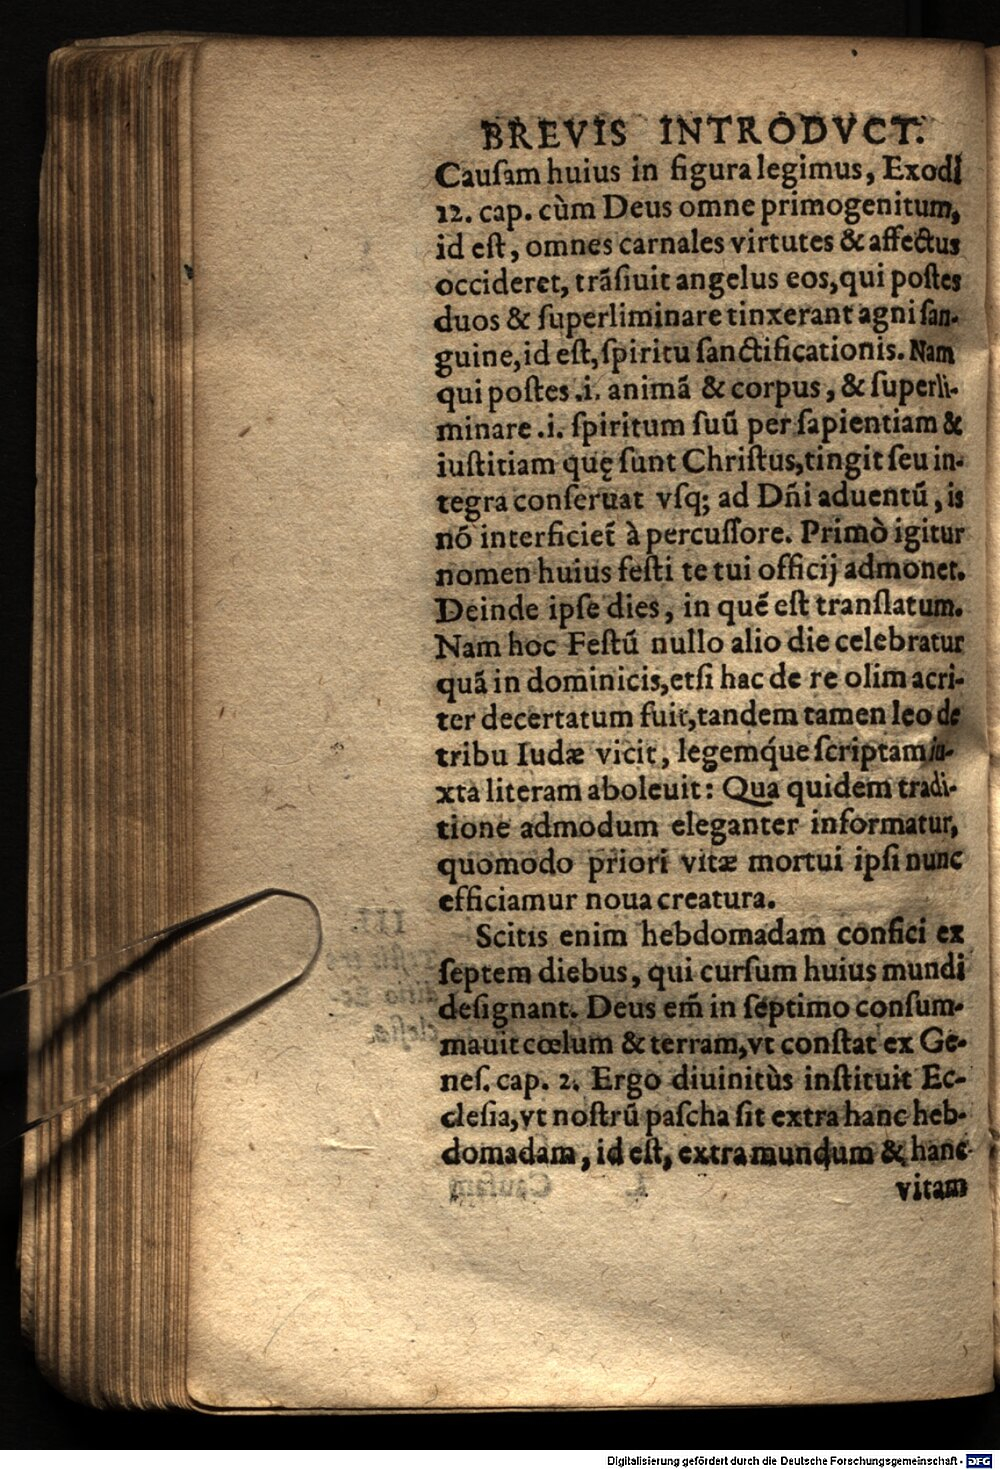 BREVIS INTRODVCT.
Cauſam huius in figura legimus, Exodi
12. cap. cùm Deus omne primogenitum,
id eſt, omnes carnales virtutes & affectus
occideret, trãſiuit angelus eos, qui poſtes
duos & ſuperliminare tinxerant agni ſan-
guine, id eſt, ſpiritu ſanctificationis. Nam
qui poſtes .i. animã & corpus, & ſuperli-
minare .i. ſpiritum ſuũ per ſapientiam &
iuſtitiam quę ſunt Chriſtus, tingit ſeu in-
tegra conſeruat vſq; ad Dñi aduentũ, is
nõ interficiet̃ à percuſſore. Primò igitur
nomen huius feſti te tui officij admonet.
Deinde ipſe dies, in quẽ eſt translatum.
Nam hoc Feſtũ nullo alio die celebratur
quã in dominicis, etſi hac de re olim acri-
ter decertatum fuit, tandem tamen leo de
tribu Iudæ vicit, legemq́ue ſcriptam iu-
xta literam aboleuit: Qua quidem tradi-
tione admodum eleganter informatur,
quomodo priori vitæ mortui ipſi nunc
efficiamur noua creatura.
Scitis enim hebdomadam confici ex
ſeptem diebus, qui curſum huius mundi
deſignant. Deus em̃ in ſeptimo conſum-
mauit cœlum & terram, vt conſtat ex Ge-
neſ. cap. 2. Ergo diuinitùs inſtituit Ec-
cleſia, vt noſtrũ paſcha ſit extra hanc heb-
domadam, id eſt, extra mundum & hanc
vitam
Digitalisierung gefördert durch die Deutsche Forschungsgemeinschaft - DFG